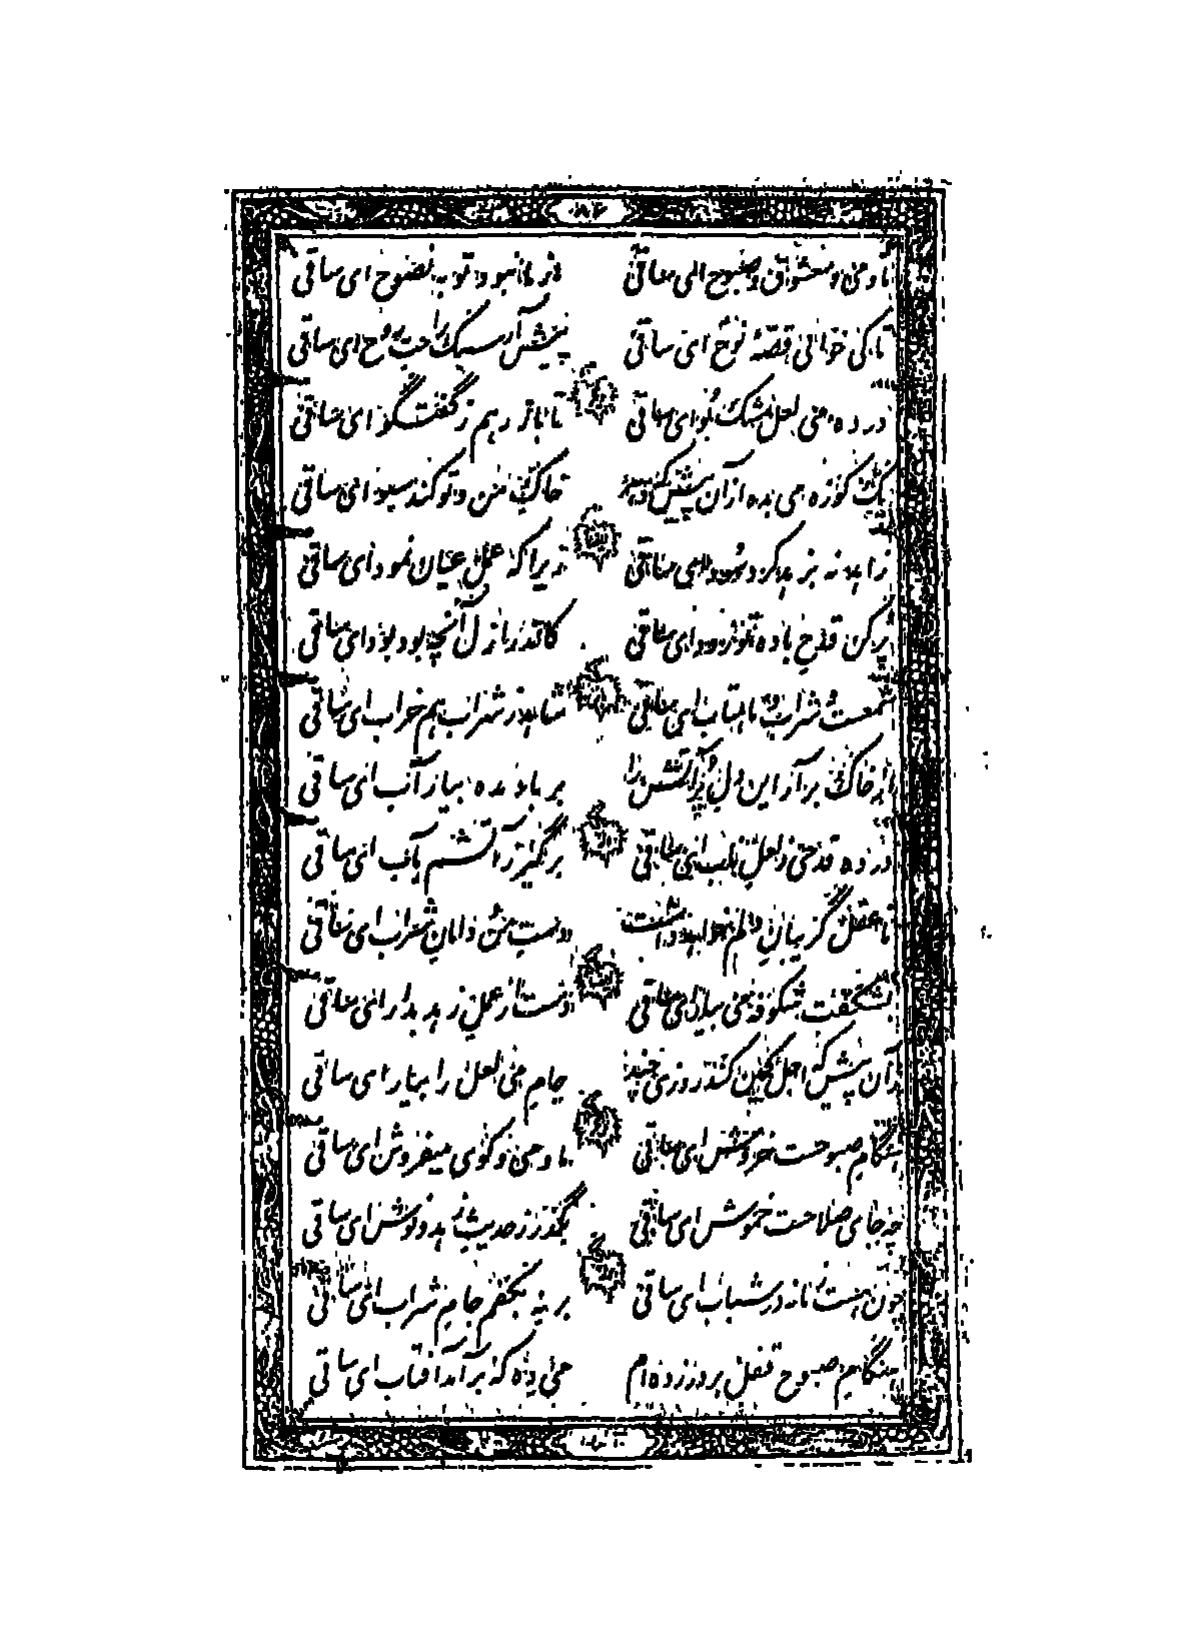 ما و می و معشوق و صبوح ای ساقی از ما نبود توبه نصوح ای ساقی
تا کی خوانی قصهٔ نوح ای ساقی پیش آر سبک راحت روح ای ساقی
در ده می لعل مشک بو ای ساقی تا باز رهم ز گفتگو ای ساقی
یک کوزه می بده از آن پیش که خاک من و تو کند سبو ای ساقی
زاهد نه بزهد کرد سود ای ساقی زیرا که عمل عیان نمود ای ساقی
پر کن قدح باده تو زود ای ساقی کاندر ازل آنچه بود بود ای ساقی
شمعست شراب و ماهتاب ای ساقی شاهد ز شراب هم خراب ای ساقی
از خاک برآر این دل پر آتش را بر باد مده بیار آب ای ساقی
در ده قدحی ز لعل ناب ای ساقی برگیر ز آتشم بآب ای ساقی
تا عقل گریبان دلم خواهد داشت دست من و دامان شراب ای ساقی
بشکفت شکوفه می بیار ای ساقی دست از عمل زهد بدار ای ساقی
زان پیش که اجل کمین کند روزی چند جام می لعل را بیار ای ساقی
هنگام صبوحست خروش ای ساقی ما و می و کوی میفروش ای ساقی
چه جای صلاحست خموش ای ساقی بگذر ز حدیث زهد و نوش ای ساقی
چون هست زمانه در شتاب ای ساقی بر نه بکفم جام شراب ای ساقی
هنگام صبوح قفل بر در زده‌ام می ده که برآمد آفتاب ای ساقی